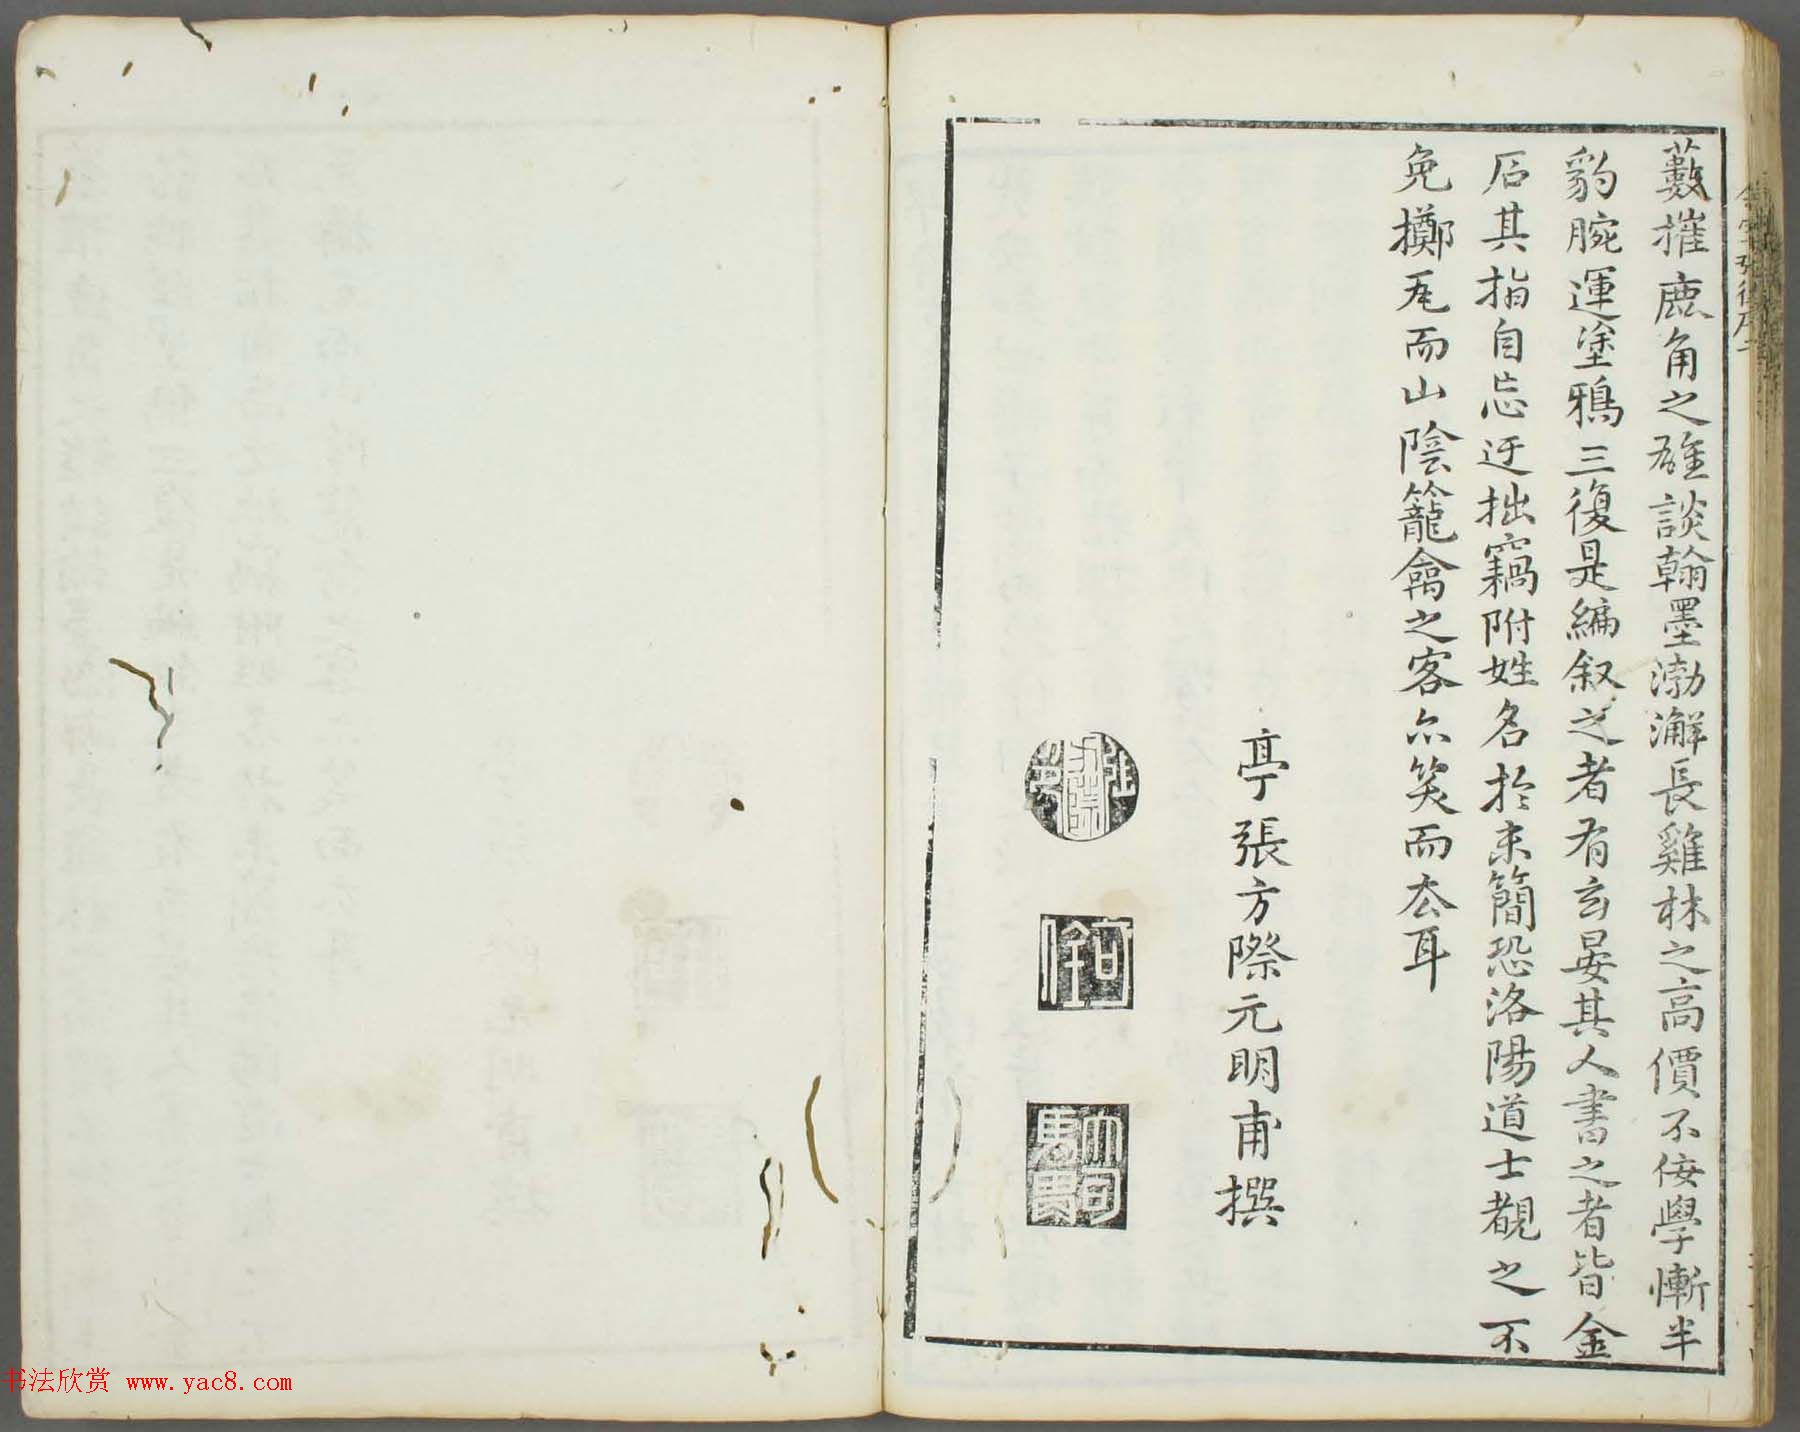 藪摧鹿角之雄談翰墨渤澥長雞林之高價不佞學慚半
豹腕運塗鴉三復是編叙之者有玄晏其人書之者皆金
石其指自忘迂拙竊附姓名於末簡恐洛陽道士覩之不
免擲瓦而山陰籠禽之客尒笑而去耳
亭張方際元明甫撰
书法欣赏 www.yac8.com